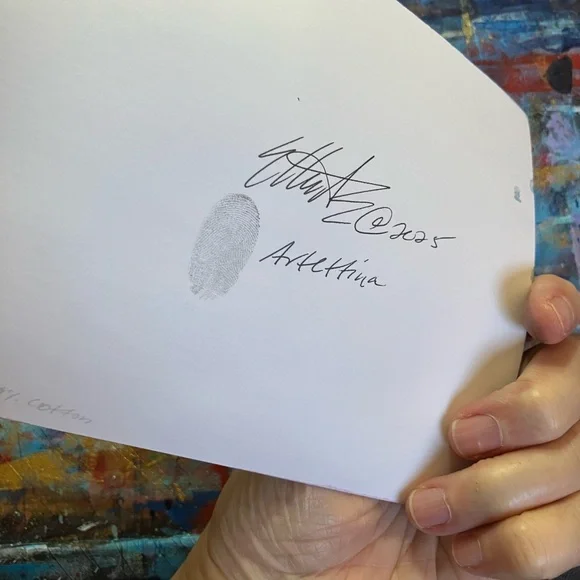 ©2025
Artettina
% cotton